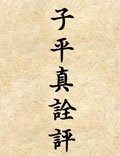 子平真詮評